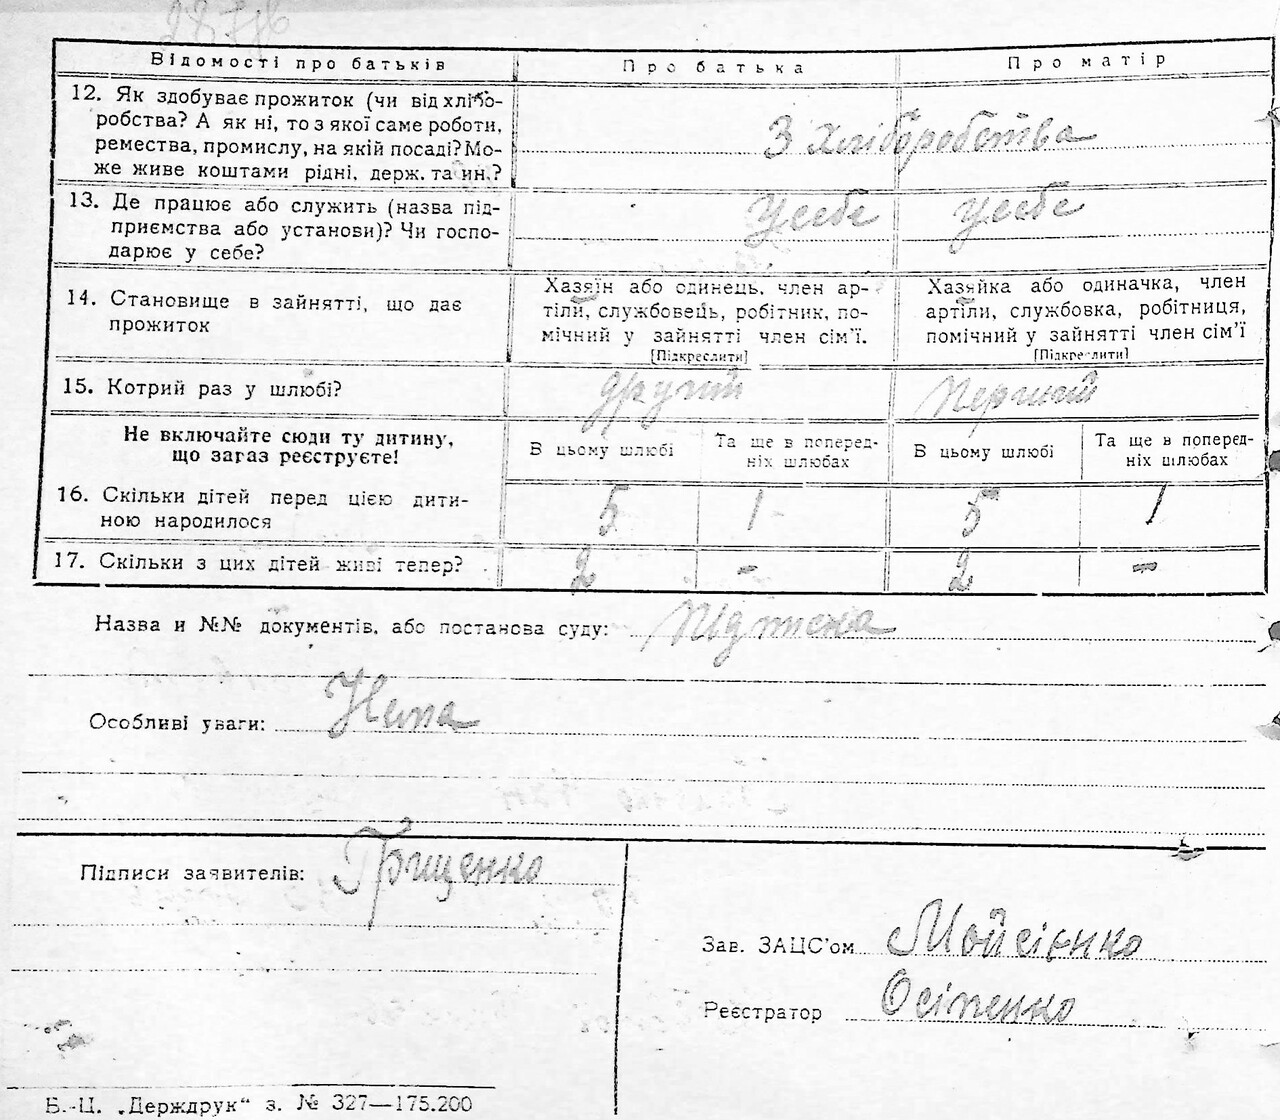 Відомості про батьків Про батька Про матір
12. Як здобуває прожиток (чи від хлібо-
робства? А як ні, то з якої саме роботи,
ремества, промислу, на якій посаді? Мо-
же живе коштами рідні, держ. та ин.?
З хліборобства
13. Де працює або служить (назва під-
приємства або установи)? Чи госпо-
дарює у себе?
У себе У себе
14. Становище в зайнятті, що дає
прожиток
Хазяїн або одинець, член ар-
тіли, службовець, робітник, по-
мічний у зайнятті член сім'ї.
[Підкреслити]
Хазяйка або одиначка, член
артіли, службовка, робітниця,
помічний у зайнятті член сім'ї
[Підкреслити]
15. Котрий раз у шлюбі? другий перший
Не включайте сюди ту дитину,
що зараз реєструєте!
В цьому шлюбі
Та ще в поперед-
ніх шлюбах
В цьому шлюбі
Та ще в поперед-
ніх шлюбах
16. Скільки дітей перед цією дити-
ною народилося
5 1 5 1
17. Скільки з цих дітей живі тепер? 2 - 2 -
Назва и №№ документів, або постанова суду:
Особливі уваги: Нема
Підписи заявителів: Грищенко
Зав. ЗАЦС'ом Мойсієнко
Реєстратор Осіпенко
Б.-Ц. „Держдрук“ з. № 327—175.200